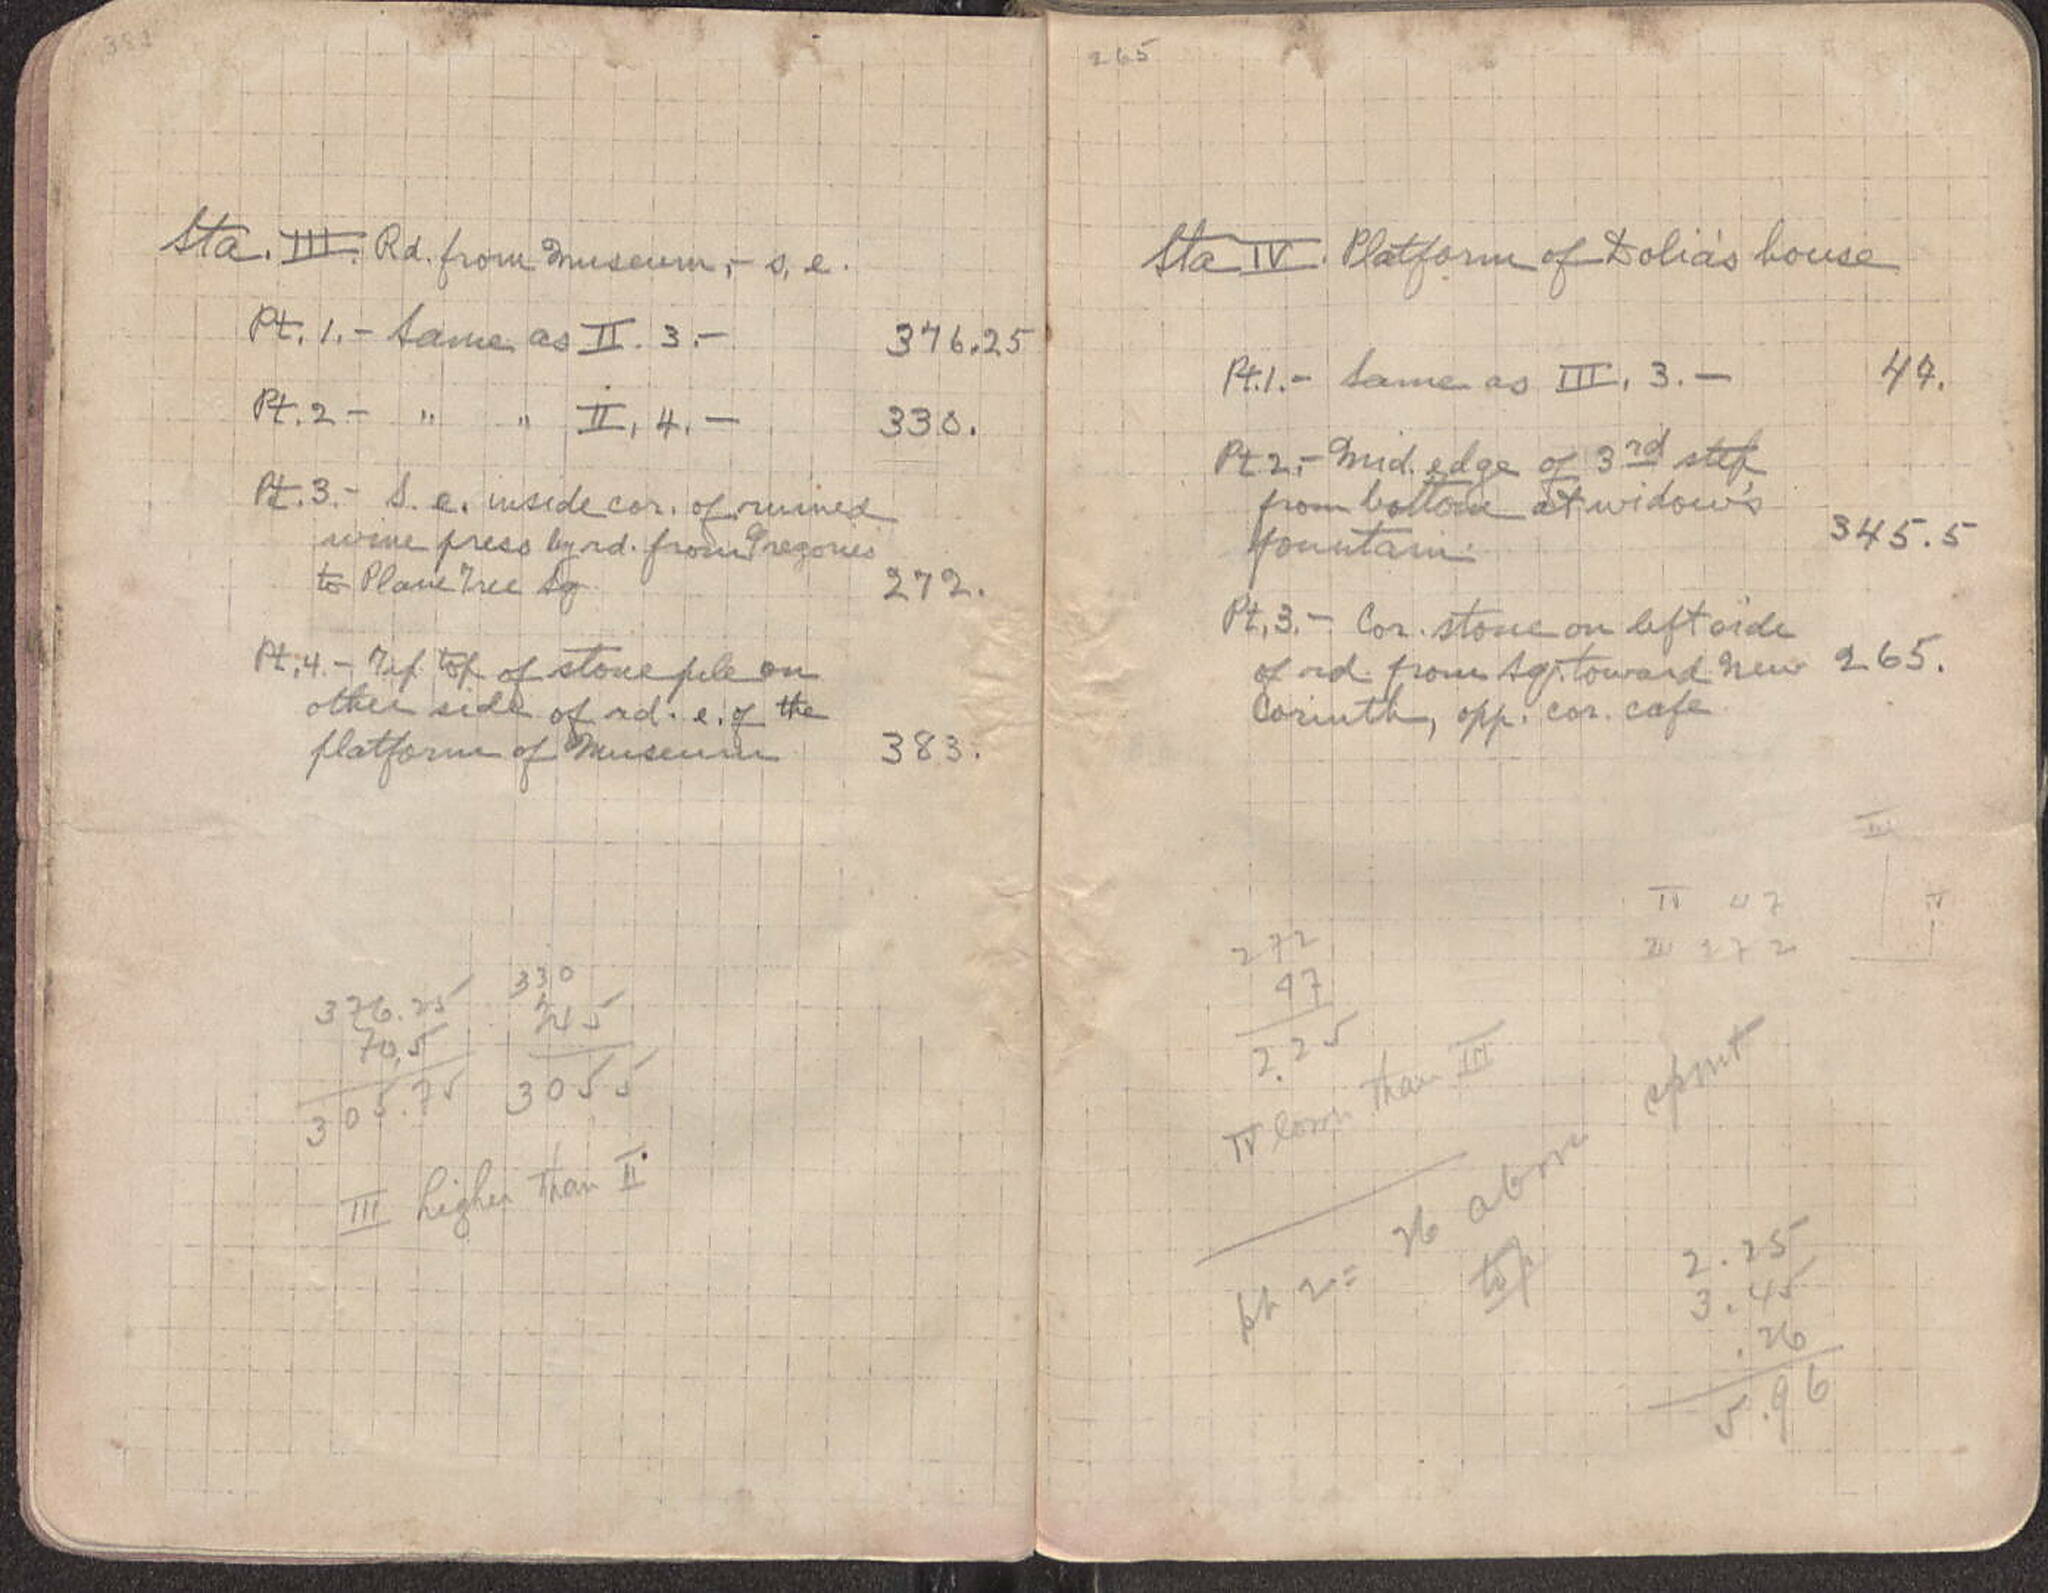 383
Sta. III. Rd. from Museum, - s. e.
Pt. 1. - Same as II. 3. - 376.25
Pt. 2 - " " II, 4. - 330.
Pt. 3. - S. e. inside cor. of ruined
wine press by rd. from Gregoris
to Plane Tree Sq 272.
Pt. 4. - Tip top of stone pile on
other side of rd. e. of the
platform of Museum 383.
376.25
70.5
305.75
330
245
3055
III higher than II
265
Sta IV. Platform of Dolia's house
Pt. 1. - Same as III, 3. - 47.
Pt 2. - Mid. edge of 3rd step
from bottom at widow's
fountain. 345.5
Pt. 3. - Cor. stone on left side
of rd. from Sq. toward New 265.
Corinth, opp. cor. cafe
III
IV 47
III 272
IV
272
47
2.25
IV lower than III
pt 2 = 26 above spout
top
2.25
3.45
.26
5.96